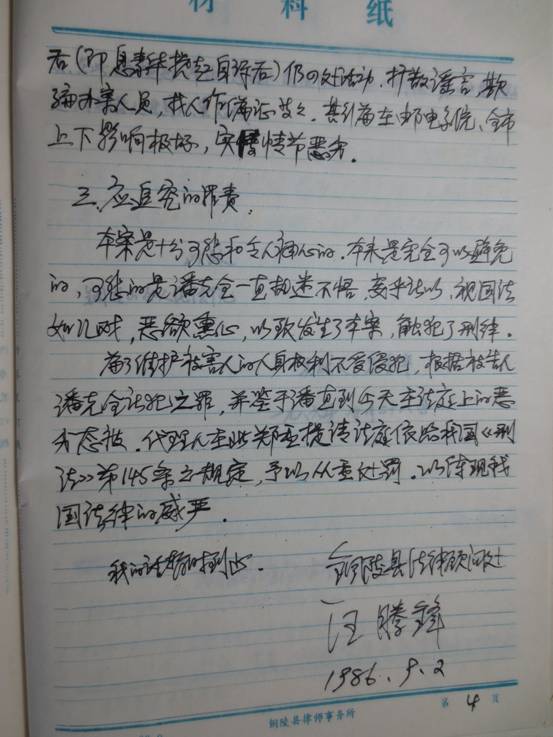 材料纸
后(即息 自诉后)仍四处活动,扩散谣言,欺
骗办案人员,找人作伪证等等。其行为在邮电系统、全市
上下影响极坏,实情节恶劣。
三、应追究的罪责,
本案是十分可悲和令人痛心的。本来是完全可以避免
的,可悲的是潘先全一直执迷不悟,视国法
如儿戏,恶欲熏心,以致发生了本案,触犯了刑律。
为了维护被害人的人身权利不受侵犯,根据被告人
潘先全所犯之罪,并鉴于潘直到今天在法庭上的恶
劣态度。代理人在此郑重提请法庭依照我国《刑
法》第145条之规定,予以从重处罚。以体现我
国法律的威严。
我的话暂时到此。 铜陵县法律顾问处
汪腾锋
1986.9.2
铜陵县律师事务所 第 4 页